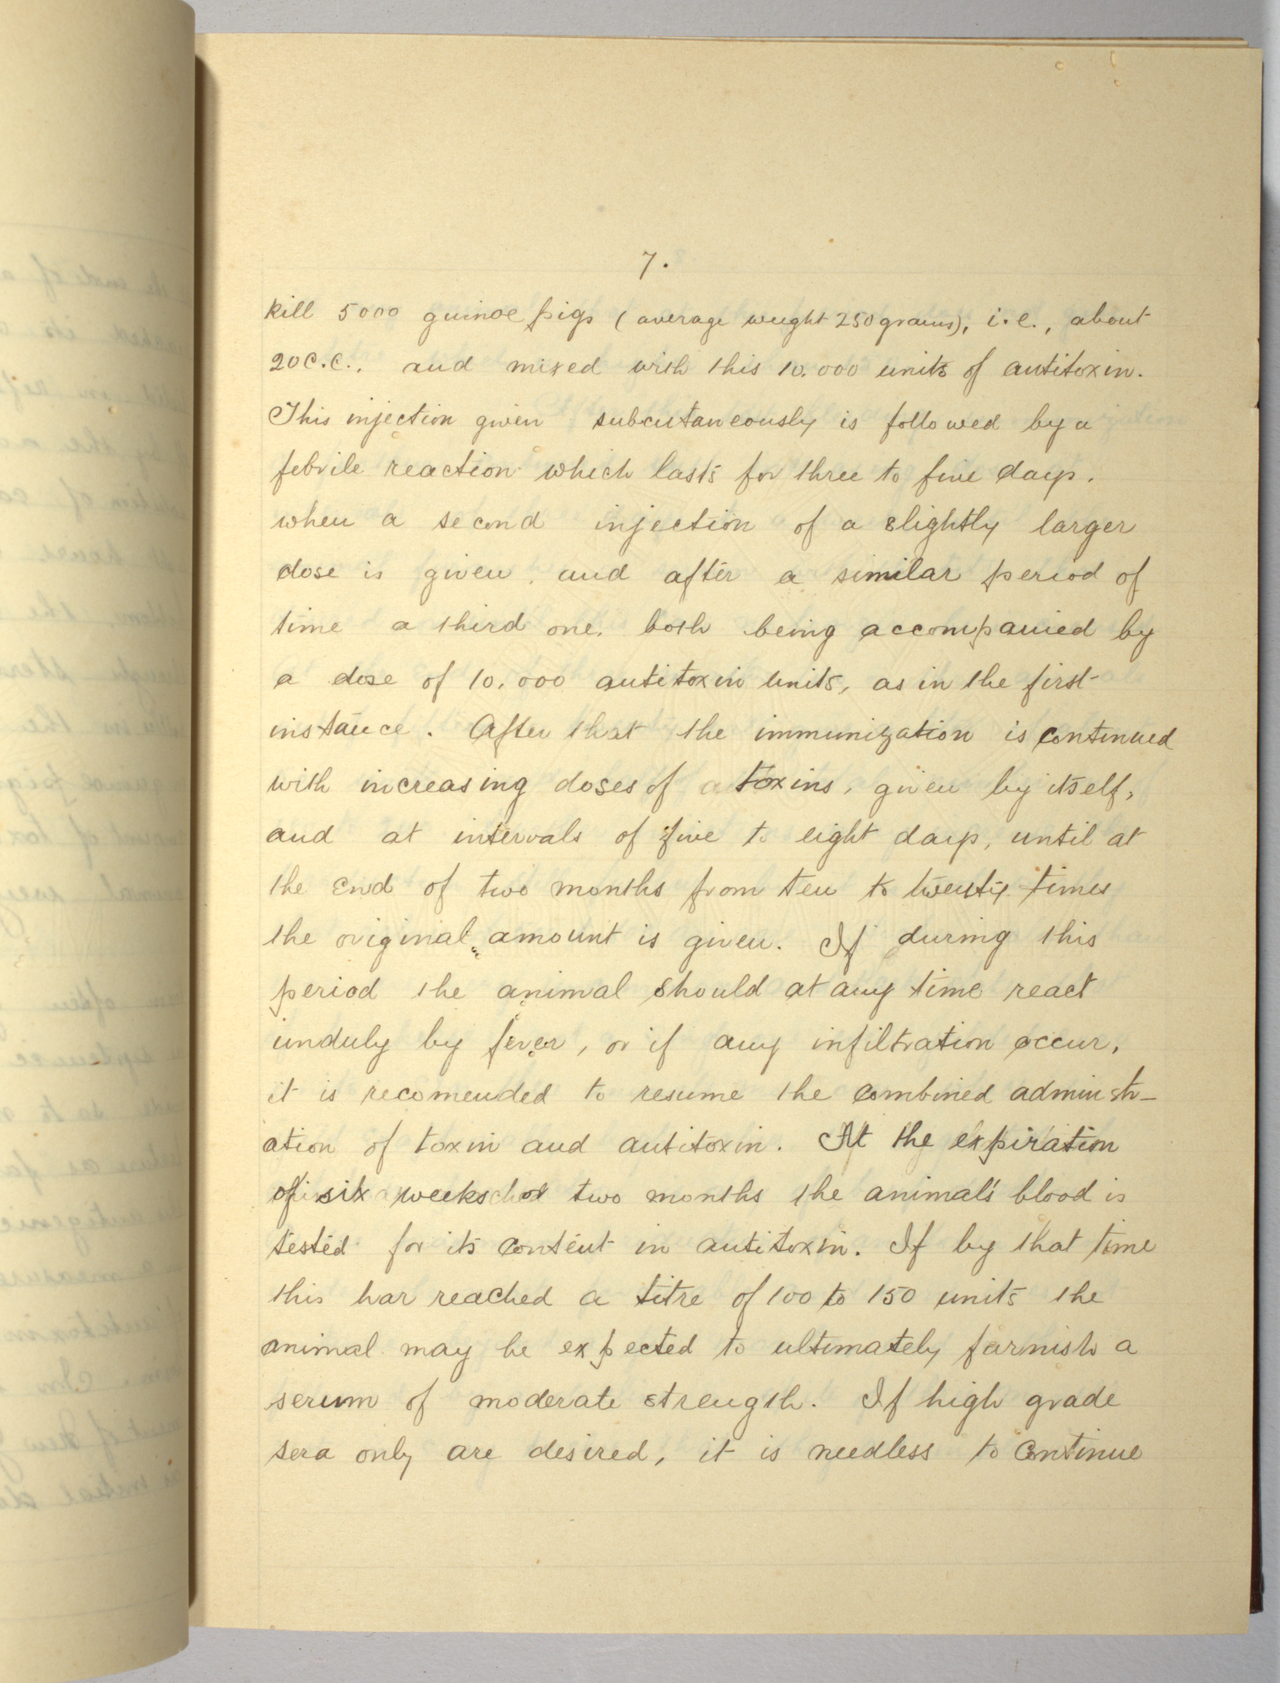 7.
kill 5000 guinae pigs (average weight 250 grams), i.e., about
20 C.C., and mixed with this 10.000 units of antitoxin.
This injection given subcutaneously is followed by a
febrile reaction which lasts for three to five days.
when a second injection of a slightly larger
dose is given, and after a similar period of
time a third one, both being accompanied by
a dose of 10.000 antitoxin units, as in the first
instance. After that the immunization is continued
with increasing doses of toxins, given by itself,
and at intervals of five to eight days, until at
the end of two months from ten to twenty times
the original amount is given. If during this
period the animal should at any time react
unduly by fever, or if any infiltration occur,
it is recomended to resume the combined administr-
ation of toxin and antitoxin. At the expiration
of six weeks or two months the animal's blood is
tested for its content in antitoxin. If by that time
this has reached a titre of 100 to 150 units the
animal may be expected to ultimately furnish a
serum of moderate strength. If high grade
sera only are desired, it is needless to continue